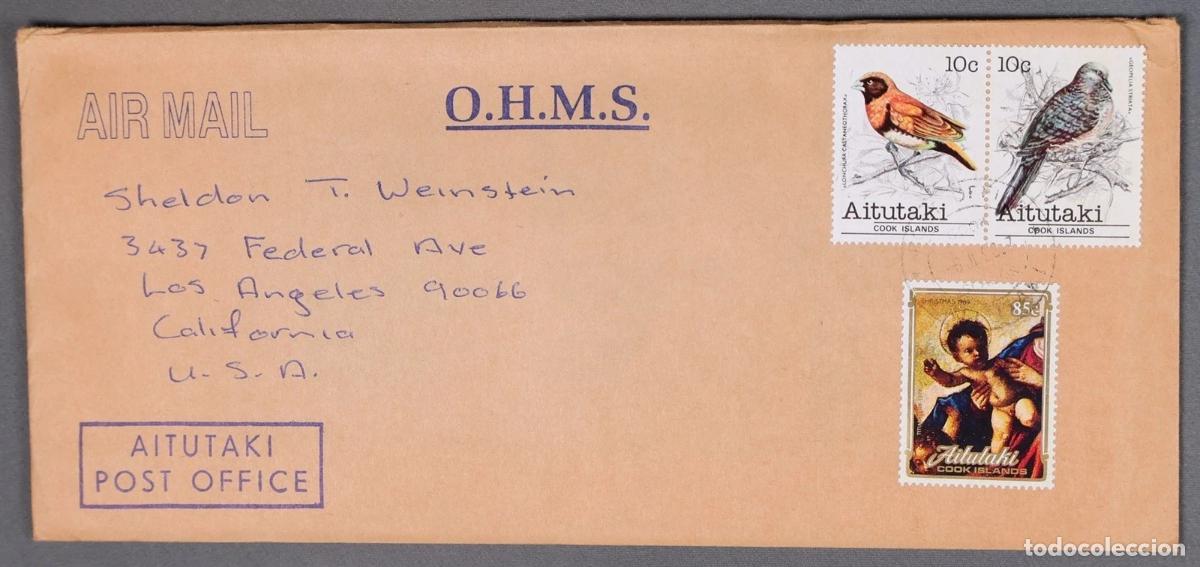 AIR MAIL
O.H.M.S.
10c
10c
"LONCHURA CASTANEOTHORAX"
"GEOPELIA STRIATA"
Aitutaki
COOK ISLANDS
Aitutaki
COOK ISLANDS
Sheldon T. Weinstein
3437 Federal Ave
Los Angeles 90066
California
U.S.A.
CHRISTMAS
85c
Aitutaki
COOK ISLANDS
AITUTAKI
POST OFFICE
todocoleccion